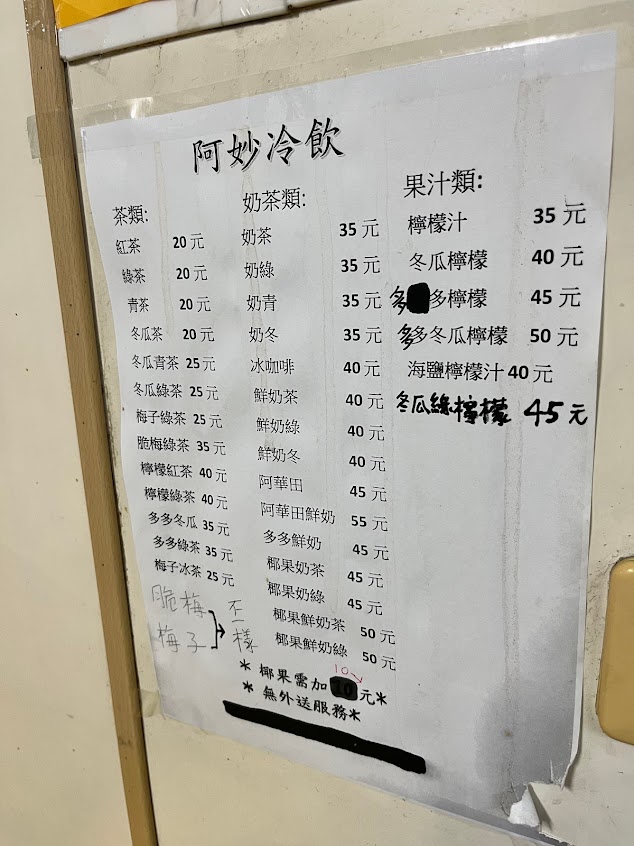 阿妙冷飲
茶類:
紅茶 20 元
綠茶 20 元
青茶 20 元
冬瓜茶 20 元
冬瓜青茶 25 元
冬瓜綠茶 25 元
梅子綠茶 25 元
脆梅綠茶 35 元
檸檬紅茶 40 元
檸檬綠茶 40 元
多多冬瓜 35 元
多多綠茶 35 元
梅子冰茶 25 元
脆梅
梅子
不一樣
奶茶類:
奶茶 35 元
奶綠 35 元
奶青 35 元
奶冬 35 元
冰咖啡 40 元
鮮奶茶 40 元
鮮奶綠 40 元
鮮奶冬 40 元
阿華田 45 元
阿華田鮮奶 55 元
多多鮮奶 45 元
椰果奶茶 45 元
椰果奶綠 45 元
椰果鮮奶茶 50 元
椰果鮮奶綠 50 元
果汁類:
檸檬汁 35 元
冬瓜檸檬 40 元
多多檸檬 45 元
多多冬瓜檸檬 50 元
海鹽檸檬汁 40 元
冬瓜綠檸檬 45 元
10
* 椰果需加 10 元*
* 無外送服務*